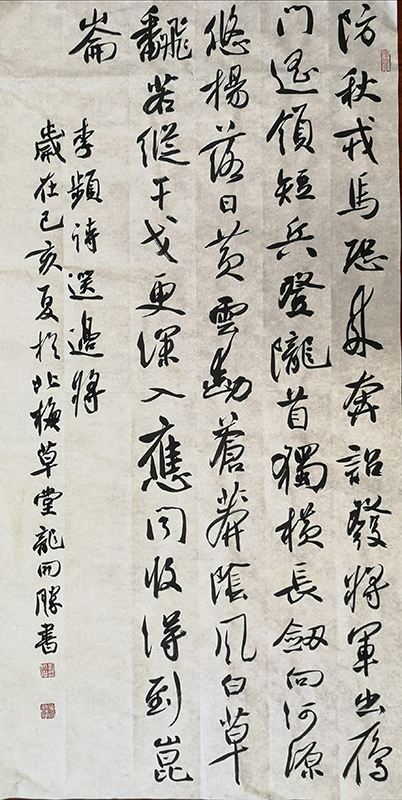 防秋戎馬恐来奔詔發將軍出雁
門遥領短兵登隴首獨横長劍向河源
悠揚落日黄雲動蒼莽陰風白草
飜若縱干戈更深入應聞收得到崑
崙
李頻詩選邊將
歲在己亥夏於北梅草堂龍開勝書